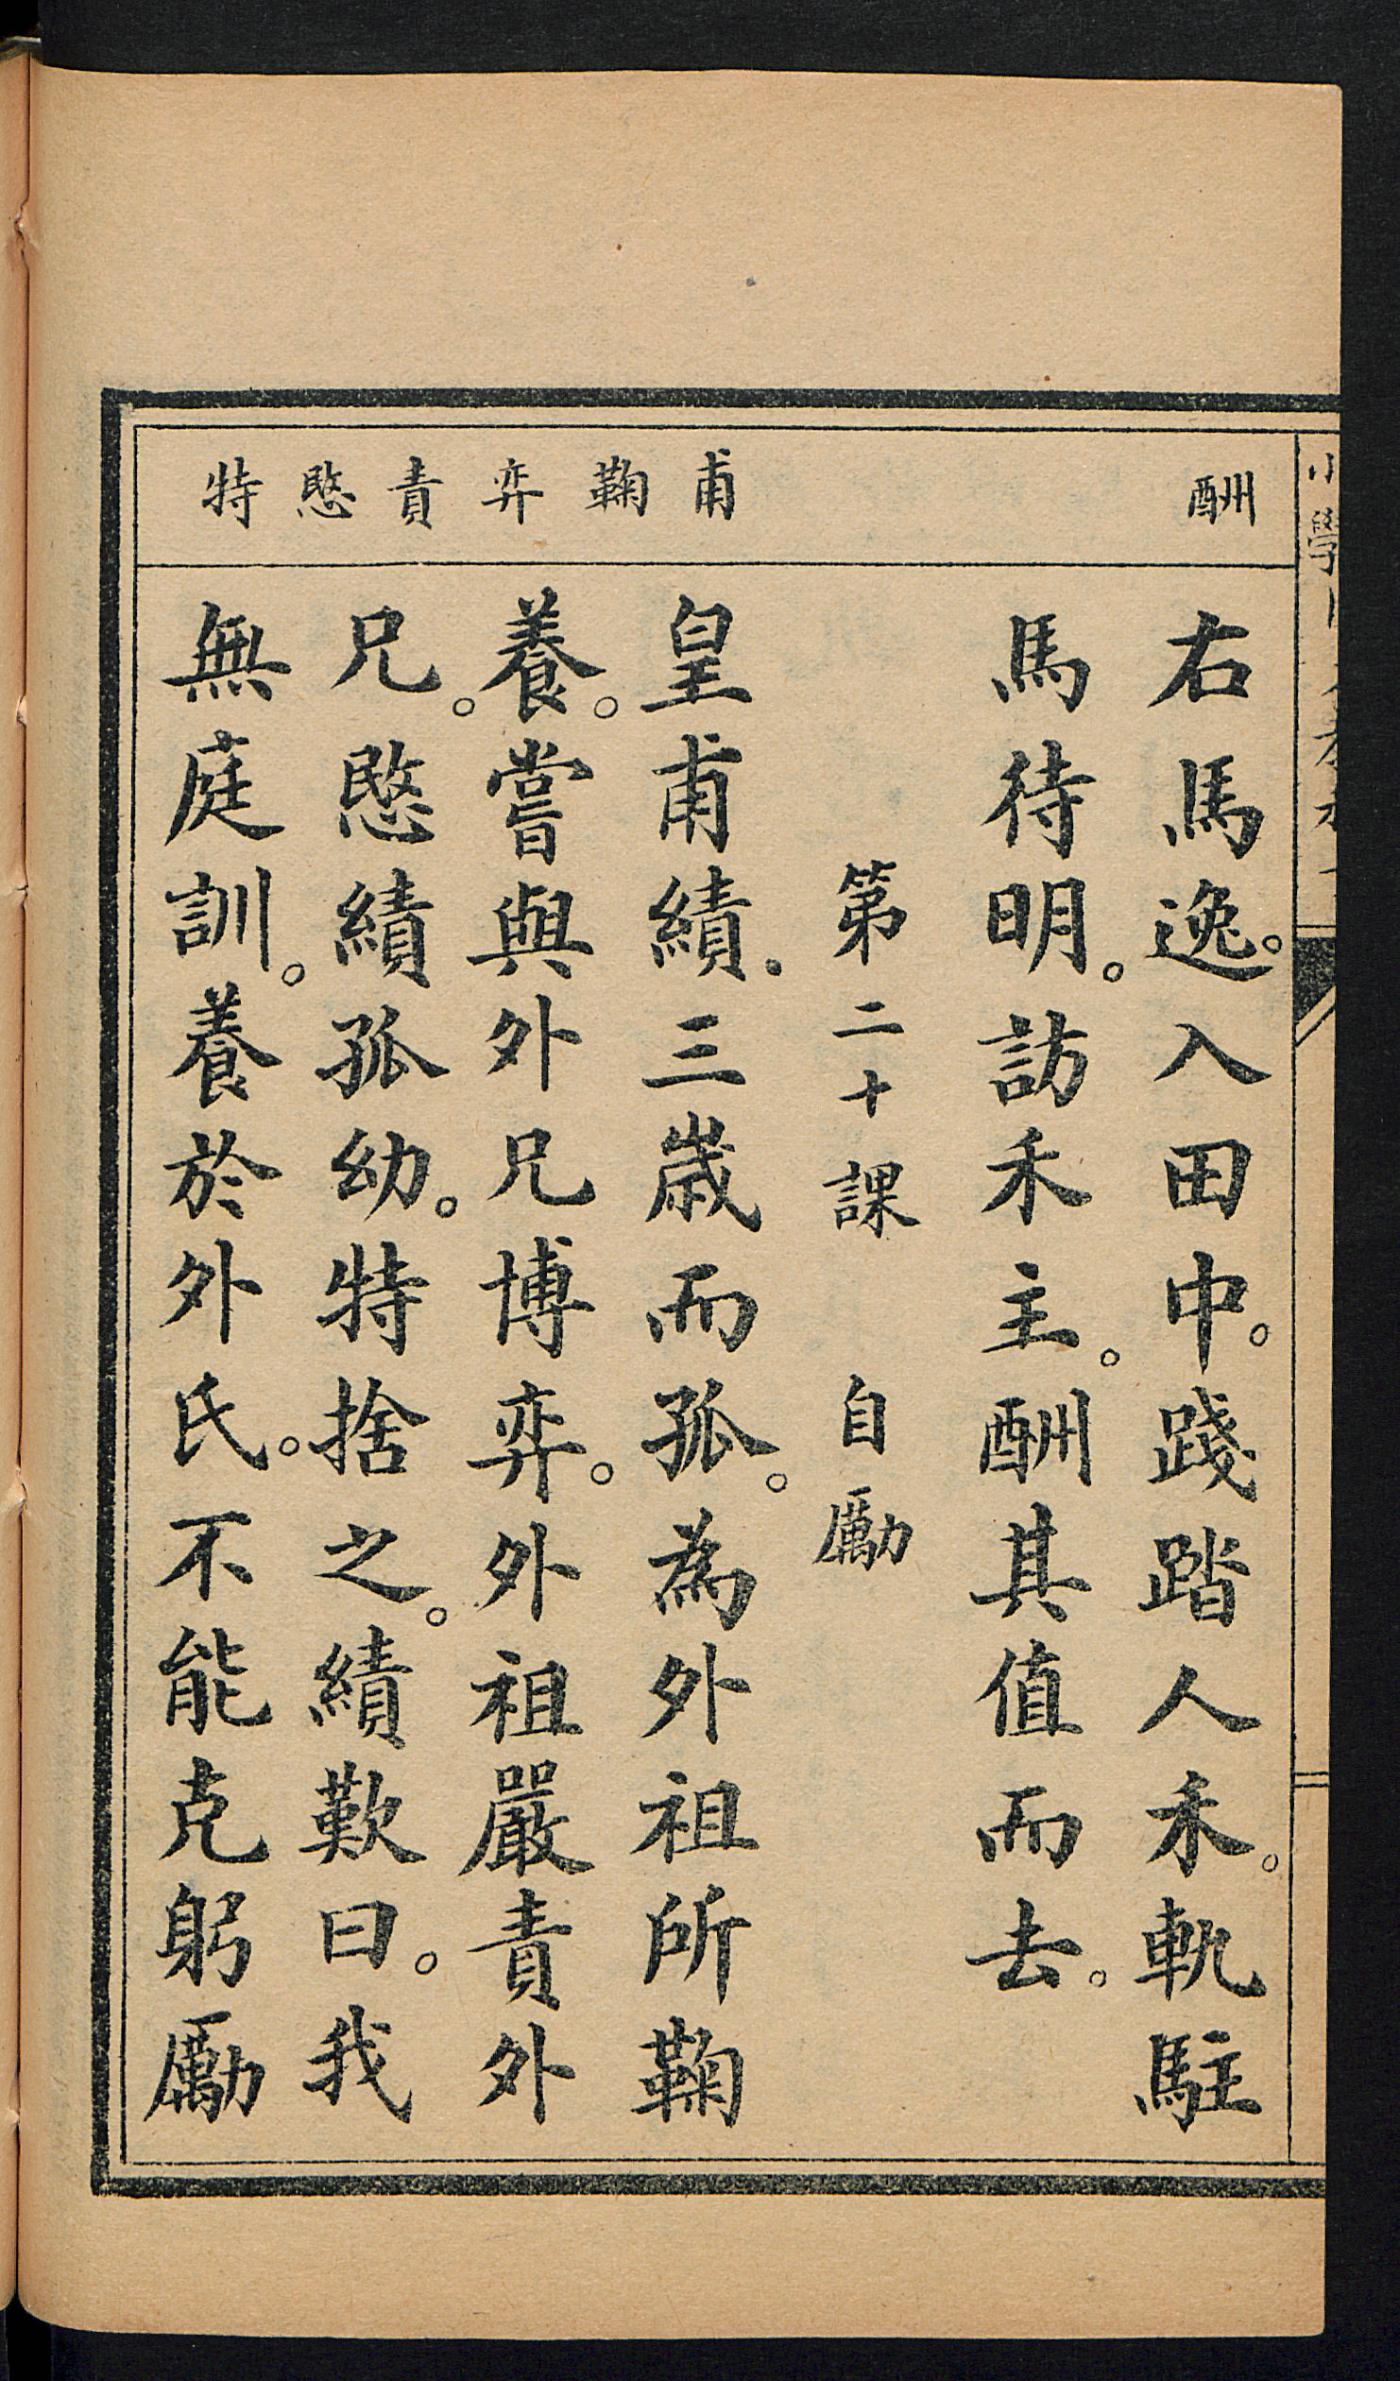 酬
甫 鞠 弈 責 愍 特
右馬逸。入田中。踐踏人禾。軌駐
馬待明。訪禾主。酬其值而去。
第二十課 自勵
皇甫績.三歲而孤。為外祖所鞠
養。嘗與外兄博弈。外祖嚴責外
兄。愍績孤幼。特捨之。績歎曰。我
無庭訓。養於外氏。不能克躬勵
小學